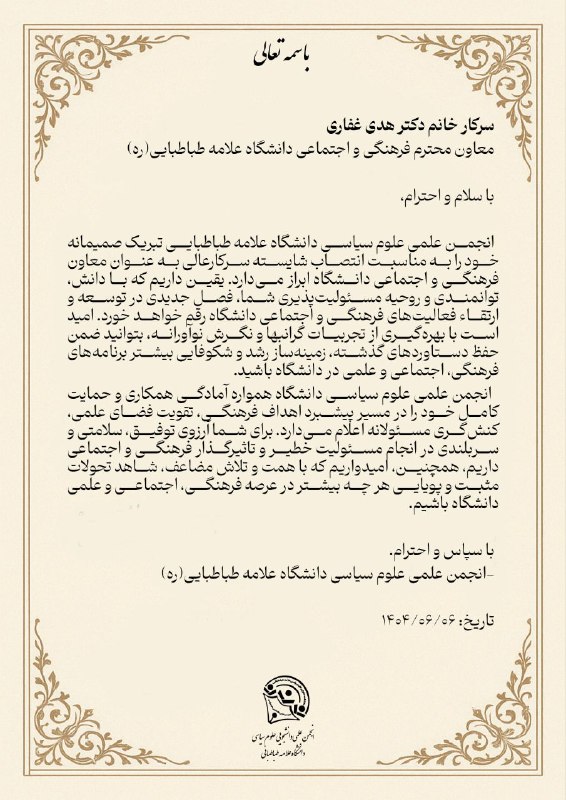 باسمه تعالی
سرکار خانم دکتر هدی غفاری
معاون محترم فرهنگی و اجتماعی دانشگاه علامه طباطبایی(ره)
با سلام و احترام،
انجمن علمی علوم سیاسی دانشگاه علامه طباطبایی تبریک صمیمانه
خود را به مناسبت انتصاب شایسته سرکارعالی به عنوان معاون
فرهنگی و اجتماعی دانشگاه ابراز می‌دارد. یقین داریم که با دانش،
توانمندی و روحیه مسئولیت‌پذیری شما، فصل جدیدی در توسعه و
ارتقاء فعالیت‌های فرهنگی و اجتماعی دانشگاه رقم خواهد خورد. امید
است با بهره‌گیری از تجربیات گرانبها و نگرش نوآورانه، بتوانید ضمن
حفظ دستاوردهای گذشته، زمینه‌ساز رشد و شکوفایی بیشتر برنامه‌های
فرهنگی، اجتماعی و علمی در دانشگاه باشید.
انجمن علمی علوم سیاسی دانشگاه همواره آمادگی همکاری و حمایت
کامل خود را در مسیر پیشبرد اهداف فرهنگی، تقویت فضای علمی،
کنش‌گری مسئولانه اعلام می‌دارد. برای شما آرزوی توفیق، سلامتی و
سربلندی در انجام مسئولیت خطیر و تاثیرگذار فرهنگی و اجتماعی
داریم، همچنین، امیدواریم که با همت و تلاش مضاعف، شاهد تحولات
مثبت و پویایی هر چه بیشتر در عرصه فرهنگی، اجتماعی و علمی
دانشگاه باشیم.
با سپاس و احترام.
-انجمن علمی علوم سیاسی دانشگاه علامه طباطبایی(ره)
تاریخ: ۱۴۰۴/۰۶/۰۶
انجمن علمی دانشجویی علوم سیاسی
دانشگاه علامه طباطبائی